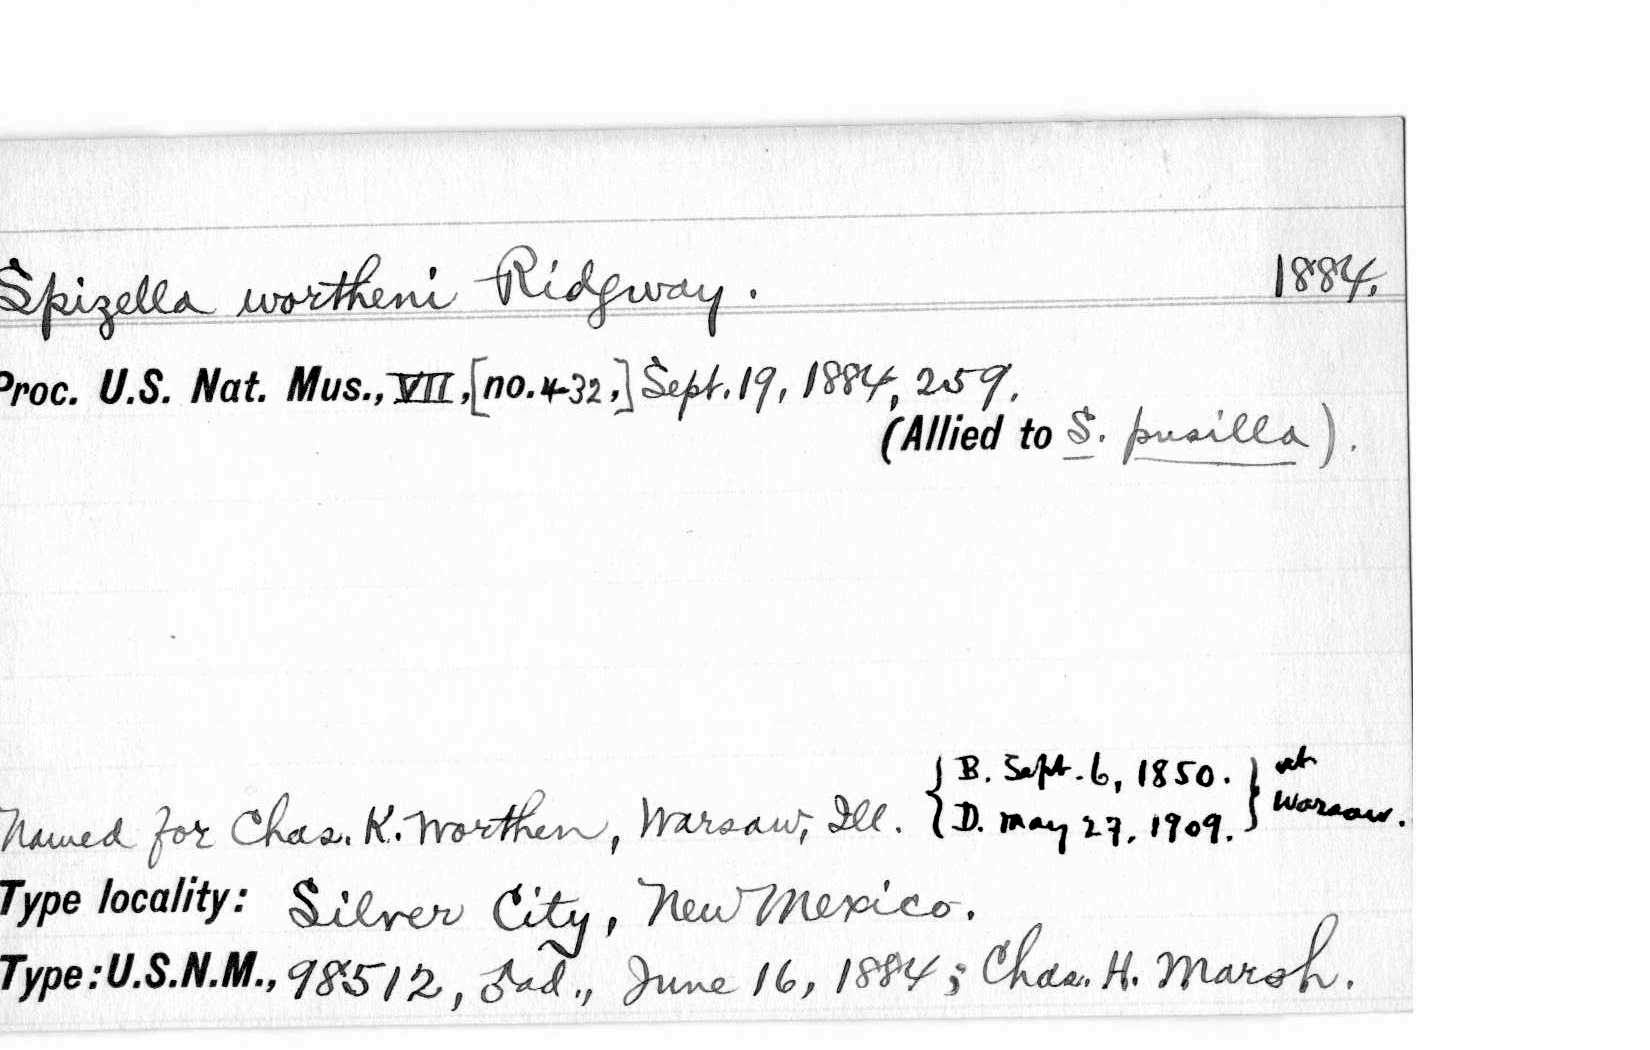 Spizella wortheni Ridgway. 1884.
Proc. U.S. Nat. Mus., VII, [no. 432,] Sept. 19, 1884, 259.
(Allied to S. pusilla).
Named for Chas. K. Worthen, Warsaw, Ill. { B. Sept. 6, 1850. } at
D. May 27, 1909. Warsaw.
Type locality: Silver City, New Mexico.
Type: U.S.N.M., 98512, ad., June 16, 1884; Chas. H. Marsh.